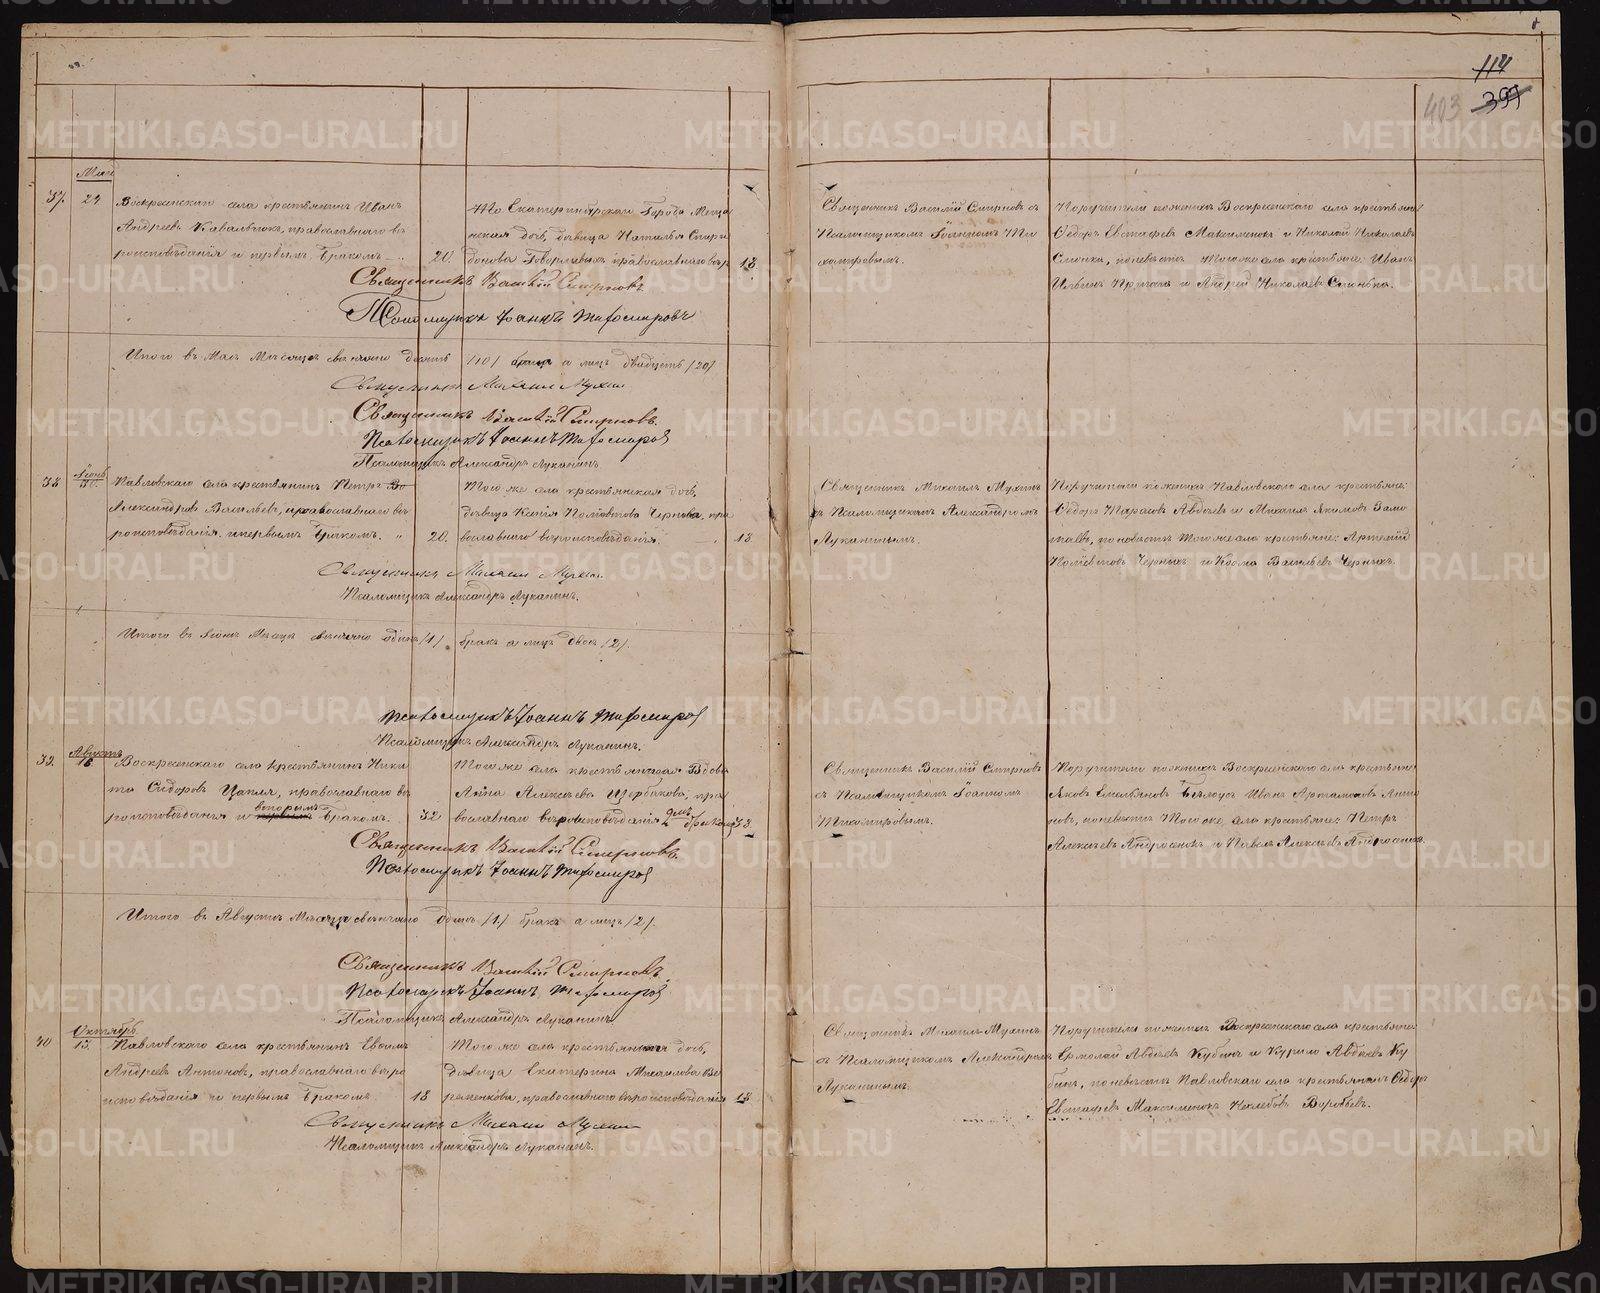 114
403 399
Май
37. 24 Воскресенскаго села крестьянинъ Иванъ
Андреевъ Ковальчюкъ, православнаго въ
роисповѣданія и первымъ бракомъ. 20.
Екатеринбурскаго Города Меща
нская дочь, дѣвица Наталья Спири
донова православнаго вѣр 18
Священникъ Василій Смирновъ съ
Псаломщикомъ Іоанномъ Ти
хомировымъ.
Поручители по женихѣ Воскресенскаго села крестьяне
Ѳедоръ Евстафьевъ Максименокъ и Николай Николаевъ
по невѣстѣ Того же села крестьяне: Иванъ
Ильинъ и Андрей Николаевъ
Священникъ Василій Смирновъ
Псаломщикъ Іоаннъ Тихомировъ
Итого въ Маѣ Мѣсяцѣ свѣнчано десять /10/ брака а лицъ двадцать /20/
Священникъ Михаилъ Мухинъ
Священникъ Василій Смирновъ.
Псаломщикъ Іоаннъ Тихомировъ
Псаломщикъ Александръ Луканинъ
Іюнь
38 30. Павловскаго села крестьянинъ Петръ
Александровъ Васильевъ, православнаго вѣ
роисповѣданія и первымъ бракомъ. 20.
Того же села крестьянская дочь,
дѣвица Ксенія Чернова, пра
вославнаго вѣроисповѣданія. 18.
Священникъ Михаилъ Мухинъ
съ Псаломщикомъ Александромъ
Луканинымъ.
Поручители по женихѣ Павловскаго села крестьяне:
Ѳедоръ Тарасовъ Авдѣевъ и Михаилъ Якимовъ
по невѣстѣ Того же села крестьяне: Артемій
Черныхъ и Козма Васильевъ Черныхъ.
Священникъ Михаилъ Мухинъ.
Псаломщикъ Александръ Луканинъ.
Итого въ Іюнѣ Мѣсяцѣ свѣнчано одинъ /1/ бракъ а лицъ двое /2/.
Псаломщикъ Іоаннъ Тихомировъ
Псаломщикъ Александръ Луканинъ.
Августъ
39. 18. Воскресенскаго села крестьянинъ Ники
та Сидоровъ Цапля, православнаго вѣ
роисповѣданія и вторымъ бракомъ. 32
Того же села крестьянская Вдова
Анна Алексѣева Щербакова, пра
вославнаго вѣроисповѣданія 2мъ бракомъ 33.
Священникъ Василій Смирновъ
съ Псаломщикомъ Іоанномъ
Тихомировымъ.
Поручители по женихѣ Воскресенскаго села крестьяне
Яковъ Емельяновъ Бѣлоусъ Иванъ Артамоновъ
по невѣстѣ Того же села крестьяне: Петръ
Алексѣевъ Андросенокъ и Павелъ Алексѣевъ Андросенокъ.
Священникъ Василій Смирновъ.
Псаломщикъ Іоаннъ Тихомировъ
Итого въ Августѣ Мѣсяцѣ свѣнчано одинъ /1/ бракъ а лицъ /2/.
Священникъ Василій Смирновъ
Псаломщикъ Іоаннъ Тихомировъ
Псаломщикъ Александръ Луканинъ
Октябрь
40 15. Павловскаго села крестьянинъ Евѳимъ
Андреевъ Антоновъ, православнаго вѣро
исповѣданія и первымъ бракомъ. 18
Того же села крестьянская дочь,
дѣвица Екатерина Михаилова Ве
ременкова, православнаго вѣроисповѣданія 18.
Священникъ Михаилъ Мухинъ
съ Псаломщикомъ Александромъ
Луканинымъ.
Поручители по женихѣ Воскресенскаго села крестьяне
Ермолай Авдѣевъ Кубинъ и Курило Авдѣевъ Ку
бинъ, по невѣстѣ Павловскаго села крестьянинъ Ѳедоръ
Евстафьевъ Максименокъ Воробьевъ.
Священникъ Михаилъ Мухинъ
Псаломщикъ Александръ Луканинъ.
METRIKI.GASO-URAL.RU